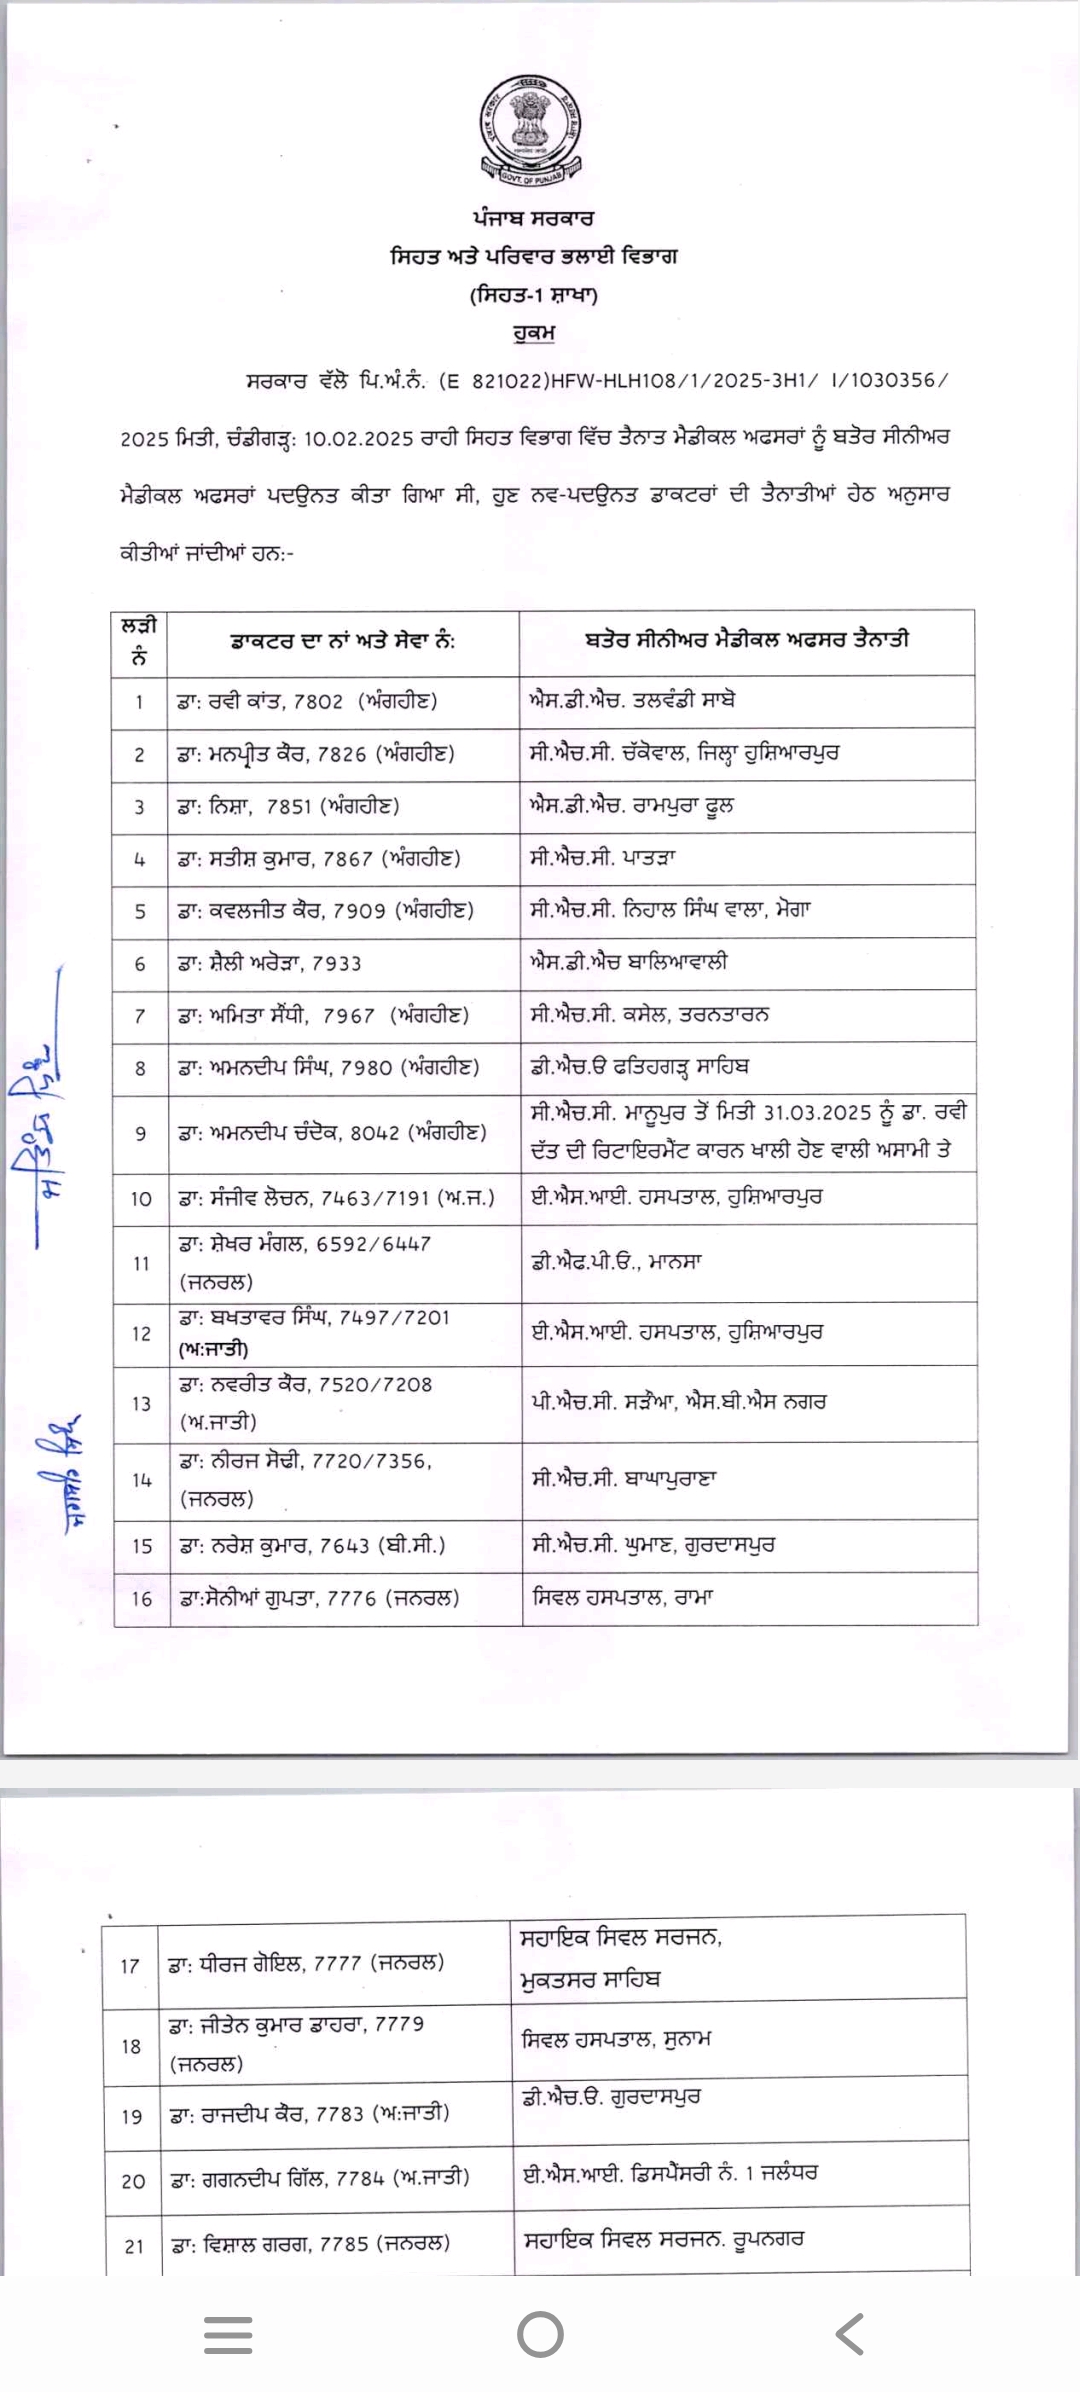 GOVT. OF PUNJAB
ਪੰਜਾਬ ਸਰਕਾਰ
ਸਿਹਤ ਅਤੇ ਪਰਿਵਾਰ ਭਲਾਈ ਵਿਭਾਗ
(ਸਿਹਤ-1 ਸ਼ਾਖਾ)
ਹੁਕਮ
ਸਰਕਾਰ ਵੱਲੋ ਪਿ.ਅੰ.ਨੰ. (E 821022)HFW-HLH108/1/2025-3H1/ I/1030356/
2025 ਮਿਤੀ, ਚੰਡੀਗੜ੍ਹ: 10.02.2025 ਰਾਹੀ ਸਿਹਤ ਵਿਭਾਗ ਵਿੱਚ ਤੈਨਾਤ ਮੈਡੀਕਲ ਅਫਸਰਾਂ ਨੂੰ ਬਤੋਰ ਸੀਨੀਅਰ
ਮੈਡੀਕਲ ਅਫਸਰਾਂ ਪਦਉਨਤ ਕੀਤਾ ਗਿਆ ਸੀ, ਹੁਣ ਨਵ-ਪਦਉਨਤ ਡਾਕਟਰਾਂ ਦੀ ਤੈਨਾਤੀਆਂ ਹੇਠ ਅਨੁਸਾਰ
ਕੀਤੀਆਂ ਜਾਂਦੀਆਂ ਹਨ:-
ਲੜੀ ਨੰ ਡਾਕਟਰ ਦਾ ਨਾਂ ਅਤੇ ਸੇਵਾ ਨੰ: ਬਤੋਰ ਸੀਨੀਅਰ ਮੈਡੀਕਲ ਅਫਸਰ ਤੈਨਾਤੀ
1 ਡਾ: ਰਵੀ ਕਾਂਤ, 7802 (ਅੰਗਹੀਣ) ਐਸ.ਡੀ.ਐਚ. ਤਲਵੰਡੀ ਸਾਬੋ
2 ਡਾ: ਮਨਪ੍ਰੀਤ ਕੌਰ, 7826 (ਅੰਗਹੀਣ) ਸੀ.ਐਚ.ਸੀ. ਚੱਕੋਵਾਲ, ਜਿਲ੍ਹਾ ਹੁਸ਼ਿਆਰਪੁਰ
3 ਡਾ: ਨਿਸ਼ਾ, 7851 (ਅੰਗਹੀਣ) ਐਸ.ਡੀ.ਐਚ. ਰਾਮਪੁਰਾ ਫੂਲ
4 ਡਾ: ਸਤੀਸ਼ ਕੁਮਾਰ, 7867 (ਅੰਗਹੀਣ) ਸੀ.ਐਚ.ਸੀ. ਪਾਤੜਾ
5 ਡਾ: ਕਵਲਜੀਤ ਕੌਰ, 7909 (ਅੰਗਹੀਣ) ਸੀ.ਐਚ.ਸੀ. ਨਿਹਾਲ ਸਿੰਘ ਵਾਲਾ, ਮੋਗਾ
6 ਡਾ: ਸ਼ੈਲੀ ਅਰੋੜਾ, 7933 ਐਸ.ਡੀ.ਐਚ ਬਾਲਿਆਵਾਲੀ
7 ਡਾ: ਅਮਿਤਾ ਸੌਂਧੀ, 7967 (ਅੰਗਹੀਣ) ਸੀ.ਐਚ.ਸੀ. ਕਸੇਲ, ਤਰਨਤਾਰਨ
8 ਡਾ: ਅਮਨਦੀਪ ਸਿੰਘ, 7980 (ਅੰਗਹੀਣ) ਡੀ.ਐਚ.ੳ ਫਤਿਹਗੜ੍ਹ ਸਾਹਿਬ
9 ਡਾ: ਅਮਨਦੀਪ ਚੰਦੋਕ, 8042 (ਅੰਗਹੀਣ) ਸੀ.ਐਚ.ਸੀ. ਮਾਨੂਪੁਰ ਤੋਂ ਮਿਤੀ 31.03.2025 ਨੂੰ ਡਾ. ਰਵੀ
ਦੱਤ ਦੀ ਰਿਟਾਇਰਮੈਂਟ ਕਾਰਨ ਖਾਲੀ ਹੋਣ ਵਾਲੀ ਅਸਾਮੀ ਤੇ
10 ਡਾ: ਸੰਜੀਵ ਲੋਚਨ, 7463/7191 (ਅ.ਜ.) ਈ.ਐਸ.ਆਈ. ਹਸਪਤਾਲ, ਹੁਸ਼ਿਆਰਪੁਰ
11 ਡਾ: ਸ਼ੇਖਰ ਮੰਗਲ, 6592/6447
(ਜਨਰਲ) ਡੀ.ਐਫ.ਪੀ.ਓ., ਮਾਨਸਾ
12 ਡਾ: ਬਖਤਾਵਰ ਸਿੰਘ, 7497/7201
(ਅ:ਜਾਤੀ) ਈ.ਐਸ.ਆਈ. ਹਸਪਤਾਲ, ਹੁਸ਼ਿਆਰਪੁਰ
13 ਡਾ: ਨਵਰੀਤ ਕੌਰ, 7520/7208
(ਅ.ਜਾਤੀ) ਪੀ.ਐਚ.ਸੀ. ਸੜੌਆ, ਐਸ.ਬੀ.ਐਸ ਨਗਰ
14 ਡਾ: ਨੀਰਜ ਸੋਢੀ, 7720/7356,
(ਜਨਰਲ) ਸੀ.ਐਚ.ਸੀ. ਬਾਘਾਪੁਰਾਣਾ
15 ਡਾ: ਨਰੇਸ਼ ਕੁਮਾਰ, 7643 (ਬੀ.ਸੀ.) ਸੀ.ਐਚ.ਸੀ. ਘੁਮਾਣ, ਗੁਰਦਾਸਪੁਰ
16 ਡਾ:ਸੋਨੀਆਂ ਗੁਪਤਾ, 7776 (ਜਨਰਲ) ਸਿਵਲ ਹਸਪਤਾਲ, ਰਾਮਾ
17 ਡਾ: ਧੀਰਜ ਗੋਇਲ, 7777 (ਜਨਰਲ) ਸਹਾਇਕ ਸਿਵਲ ਸਰਜਨ,
ਮੁਕਤਸਰ ਸਾਹਿਬ
18 ਡਾ: ਜੀਤੇਨ ਕੁਮਾਰ ਡਾਹਰਾ, 7779
(ਜਨਰਲ) ਸਿਵਲ ਹਸਪਤਾਲ, ਸੁਨਾਮ
19 ਡਾ: ਰਾਜਦੀਪ ਕੌਰ, 7783 (ਅ:ਜਾਤੀ) ਡੀ.ਐਚ.ੳ. ਗੁਰਦਾਸਪੁਰ
20 ਡਾ: ਗਗਨਦੀਪ ਗਿੱਲ, 7784 (ਅ.ਜਾਤੀ) ਈ.ਐਸ.ਆਈ. ਡਿਸਪੈਂਸਰੀ ਨੰ. 1 ਜਲੰਧਰ
21 ਡਾ: ਵਿਸ਼ਾਲ ਗਰਗ, 7785 (ਜਨਰਲ) ਸਹਾਇਕ ਸਿਵਲ ਸਰਜਨ. ਰੂਪਨਗਰ